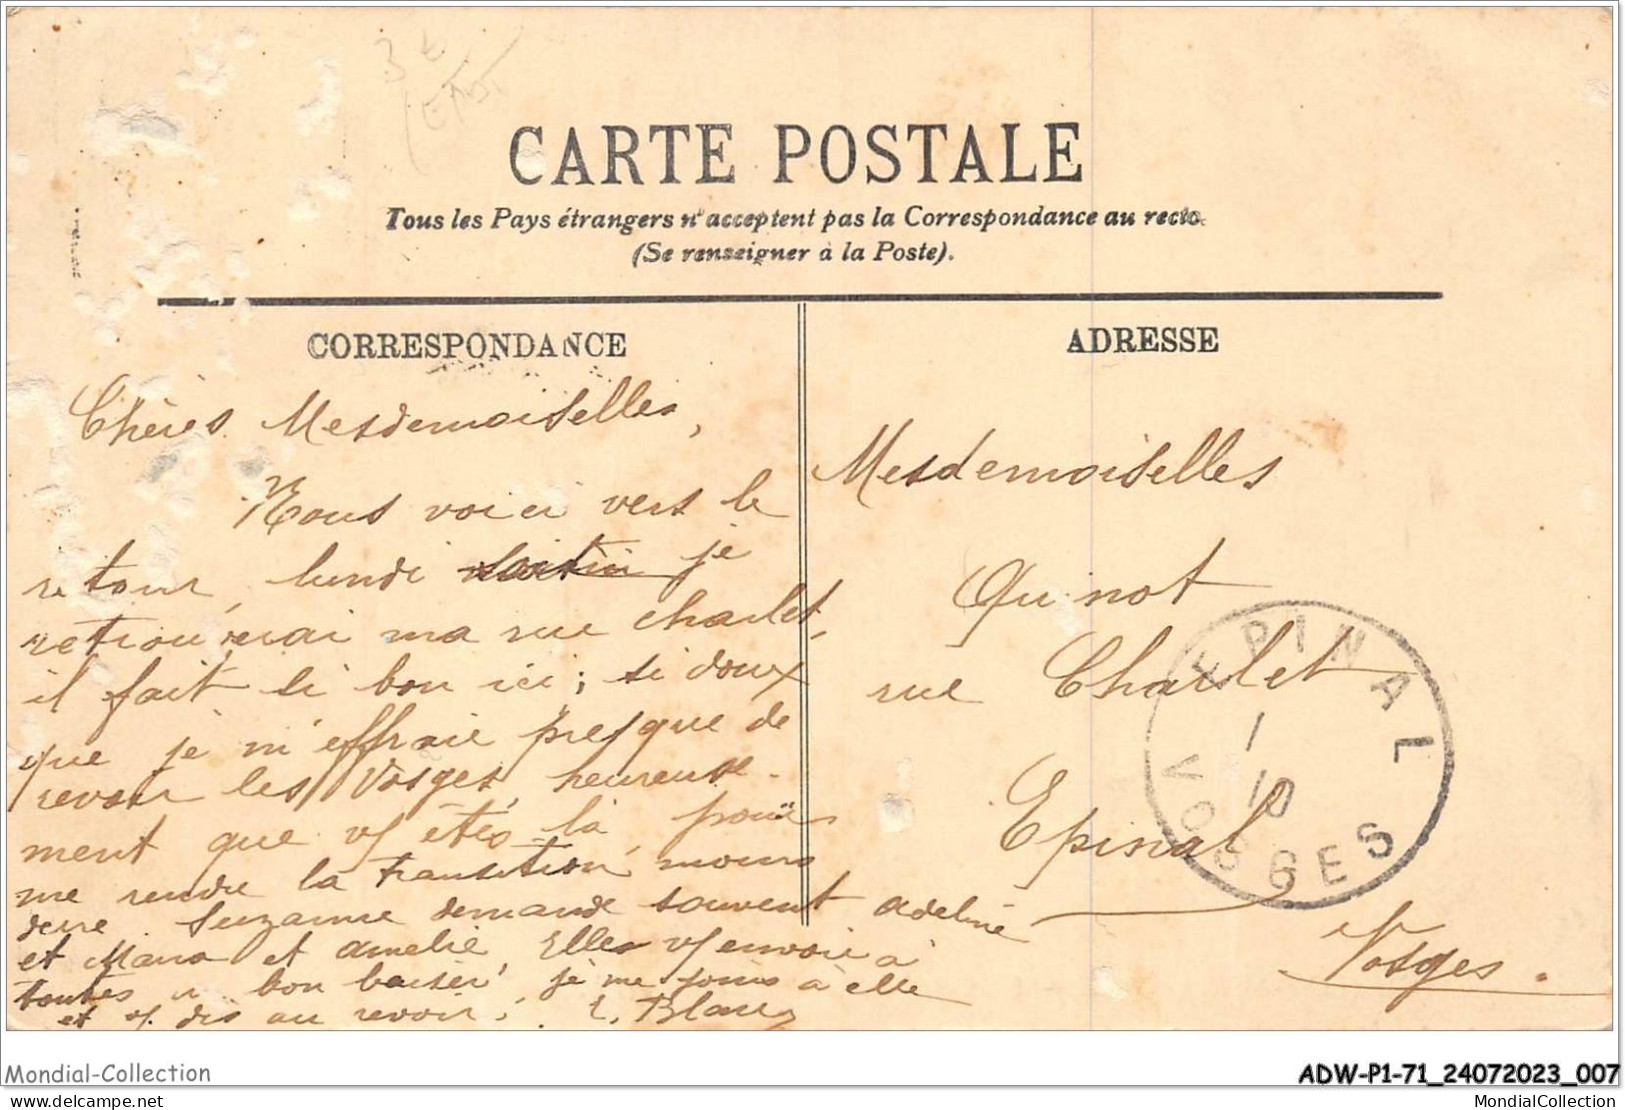 3 €
CARTE POSTALE
Tous les Pays étrangers n'acceptent pas la Correspondance au recto.
(Se renseigner à la Poste).
CORRESPONDANCE
Chères Mesdemoiselles,
Nous voici vers le
retour, lundi je
retrouverai ma rue charlet,
il fait si bon ici; si doux
que je m'effraie presque de
revoir les Vosges, heureuse-
ment que vs êtes là, pour
me rendre la transition moins
dure Suzanne demande souvent adeline
et Maria et amelie, Elles vs envoie à
toutes un bon baiser, je me joins à elle
et vs dis au revoir. E. Blanc
ADRESSE
Mesdemoiselles
Quinot
rue Charlet
Epinal
Vosges.
EPINAL
1
10
VOSGES
Mondial-Collection
ADW-P1-71_24072023_007
delcampe.net
MondialCollection